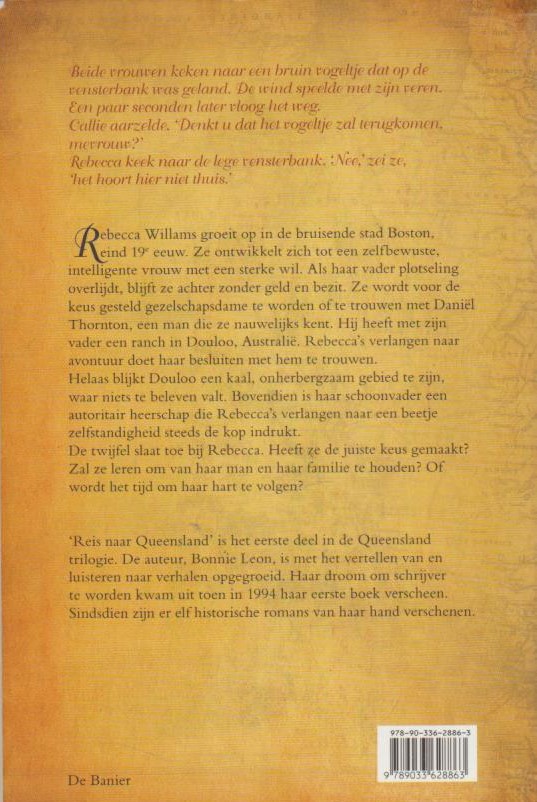 Beide vrouwen keken naar een bruin vogeltje dat op de
vensterbank was geland. De wind speelde met zijn veren.
Een paar seconden later vloog het weg.
Callie aarzelde. ‘Denkt u dat het vogeltje zal terugkomen,
mevrouw?’
Rebecca keek naar de lege vensterbank. ‘Nee,’ zei ze,
‘het hoort hier niet thuis.’
Rebecca Willams groeit op in de bruisende stad Boston,
eind 19e eeuw. Ze ontwikkelt zich tot een zelfbewuste,
intelligente vrouw met een sterke wil. Als haar vader plotseling
overlijdt, blijft ze achter zonder geld en bezit. Ze wordt voor de
keus gesteld gezelschapsdame te worden of te trouwen met Daniël
Thornton, een man die ze nauwelijks kent. Hij heeft met zijn
vader een ranch in Douloo, Australië. Rebecca’s verlangen naar
avontuur doet haar besluiten met hem te trouwen.
Helaas blijkt Douloo een kaal, onherbergzaam gebied te zijn,
waar niets te beleven valt. Bovendien is haar schoonvader een
autoritair heerschap die Rebecca’s verlangen naar een beetje
zelfstandigheid steeds de kop indrukt.
De twijfel slaat toe bij Rebecca. Heeft ze de juiste keus gemaakt?
Zal ze leren om van haar man en haar familie te houden? Of
wordt het tijd om haar hart te volgen?
‘Reis naar Queensland’ is het eerste deel in de Queensland
trilogie. De auteur, Bonnie Leon, is met het vertellen van en
luisteren naar verhalen opgegroeid. Haar droom om schrijver
te worden kwam uit toen in 1994 haar eerste boek verscheen.
Sindsdien zijn er elf historische romans van haar hand verschenen.
978-90-336-2886-3
9789033628863
De Banier